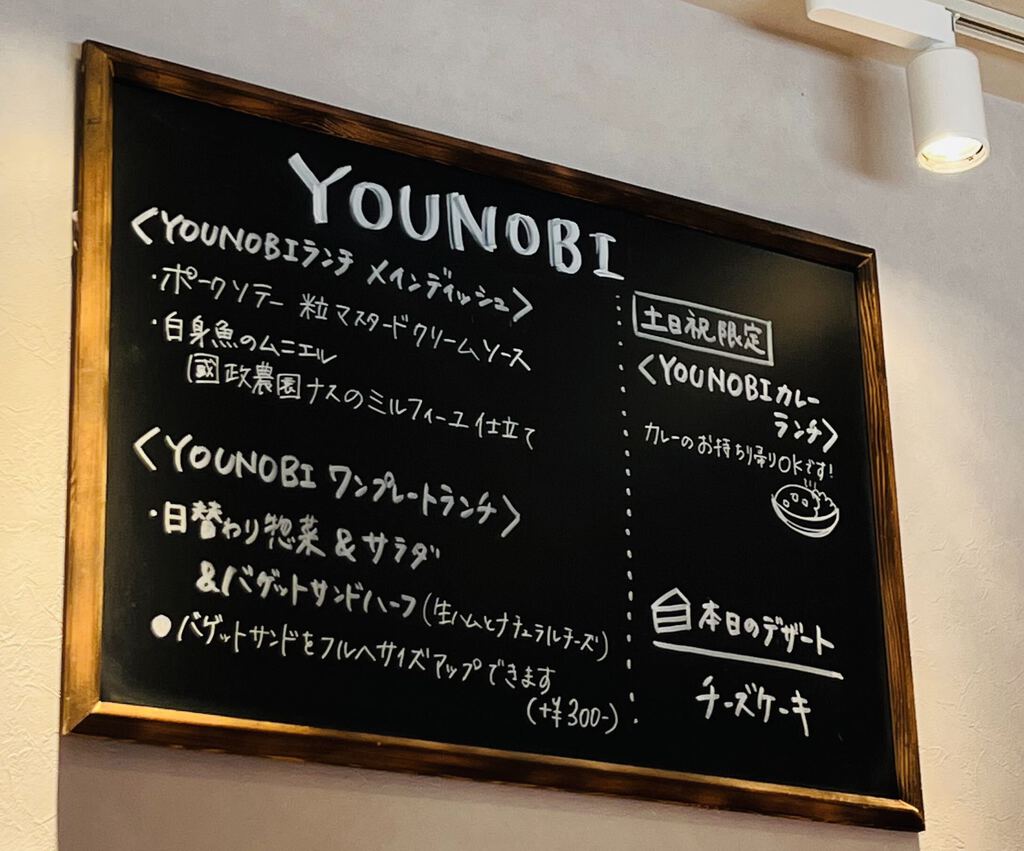 YOUNOBI
<YOUNOBIランチ メインディッシュ>
・ポークソテー 粒マスタードクリームソース
・白身魚のムニエル
國政農園ナスのミルフィーユ仕立て
<YOUNOBI ワンプレートランチ>
・日替わり惣菜&サラダ
&バゲットサンドハーフ(生ハムとナチュラルチーズ)
●バゲットサンドをフルへサイズアップできます
(+¥300-)
土日祝限定
<YOUNOBIカレー
ランチ>
カレーのお持ち帰りOKです!
本日のデザート
チーズケーキ